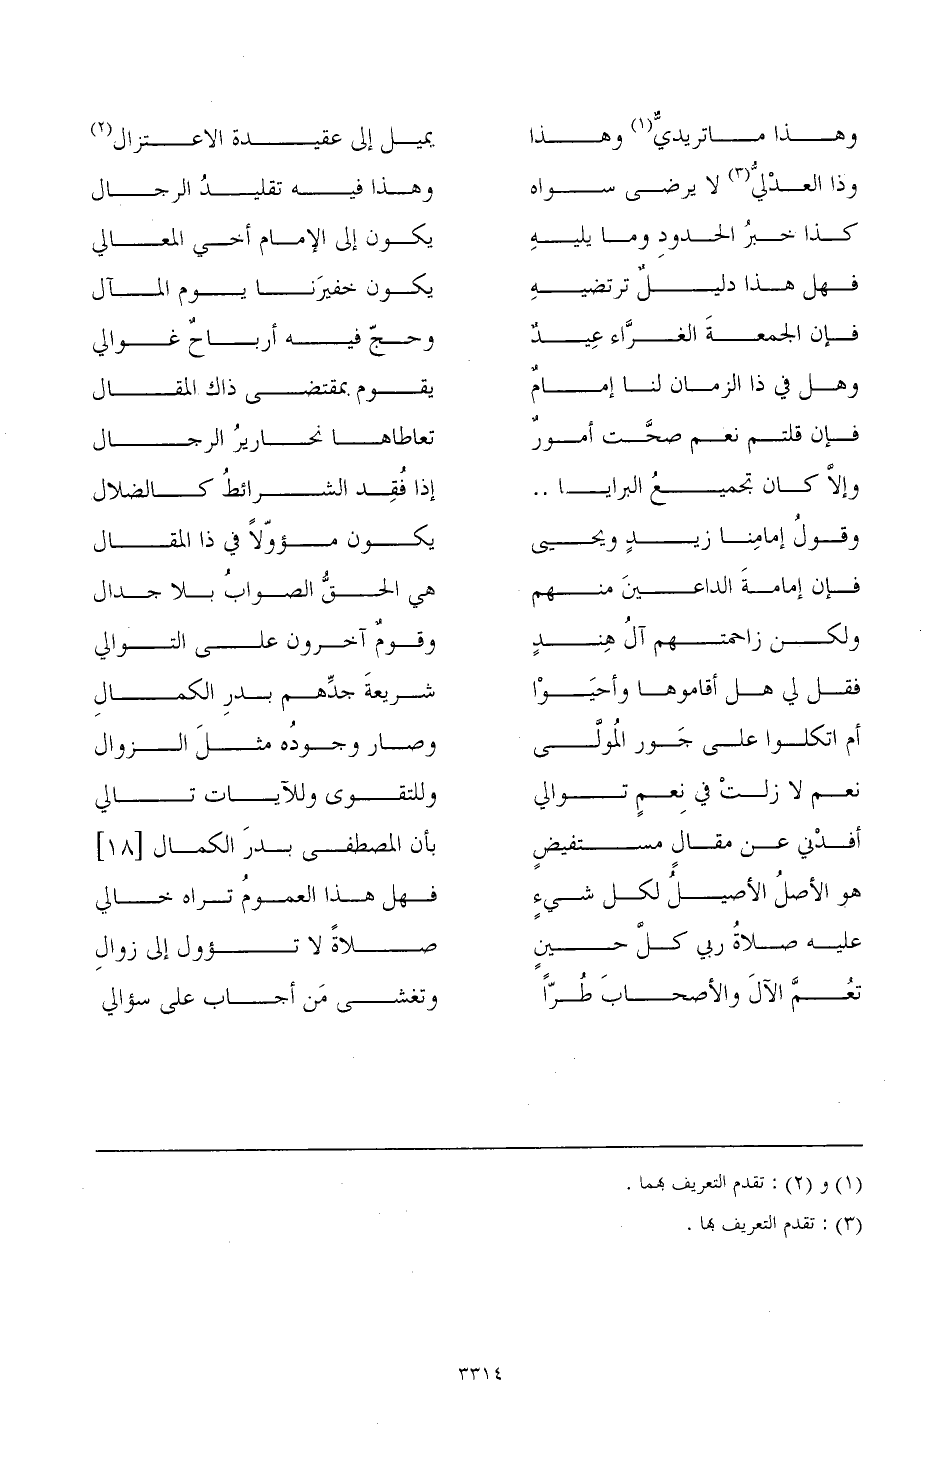 وهـذا مـاتريديٌّ(١) وهـذا يميـل إلى عقيـدة الاعـتزال(٢)
وذا العـدْليُّ(٣) لا يرضـى سـواه وهـذا فيـه تقليـدُ الرجـال
كـذا خـبرُ الحـدودِ ومـا يليـهِ يكـون إلى الإمـام أخـي المعـالي
فـهل هـذا دليـلٌ ترتضيـهِ يكـون خفيرَنـا يـوم المـآل
فـإن الجمعـةَ الغـرَّاء عِيـدٌ وحـجّ فيـه أربـاحٌ غـوالي
وهـل في ذا الزمـان لنـا إمـامٌ يقـوم بمقتضـى ذاك المقـال
فـإن قلتـم نعـم صحَّـت أمـورٌ تعاطاهـا نحـاريرُ الرجـال
وإلاَّ كـان تجميـعُ البرايـا .. إذا فُقِـد الشـرائطُ كـالضلال
وقـولُ إمامِنـا زيـدٍ ويحـيى يكـون مـؤوّلاً في ذا المقـال
فـإن إمامـةَ الداعـينَ منـهم هي الحـقُّ الصـوابُ بـلا جـدال
ولكـن زاحمتـهم آلُ هِنـدٍ وقـومٌ آخـرون علـى التـوالي
فقـل لي هـل أقاموهـا وأحيَـوْا شـريعةَ جدِّهـم بـدرِ الكمـالِ
أم اتكلـوا علـى جَـور المُولَّـى وصـار وجـودُه مثـلَ الـزوالِ
نعـم لا زلـتَ في نعـمٍ تـوالي وللتقـوى وللآيـات تـالي
أفـدْني عـن مقـالٍ مسـتفيضٍ بأن المصطفـى بـدرَ الكمـال [١٨]
هو الأصلُ الأصيـلُ لكـل شـيءٍ فـهل هـذا العمـومُ تـراه خـالي
عليـه صـلاةُ ربي كـلَّ حـينٍ صـلاةً لا تـؤول إلى زوالِ
تعُـمَّ الآلَ والأصحـابَ طُـرًّا وتغشـى مَن أجـاب على سؤالي
(١) و (٢) : تقدم التعريف بهما .
(٣) : تقدم التعريف بها .
٣٣١٤